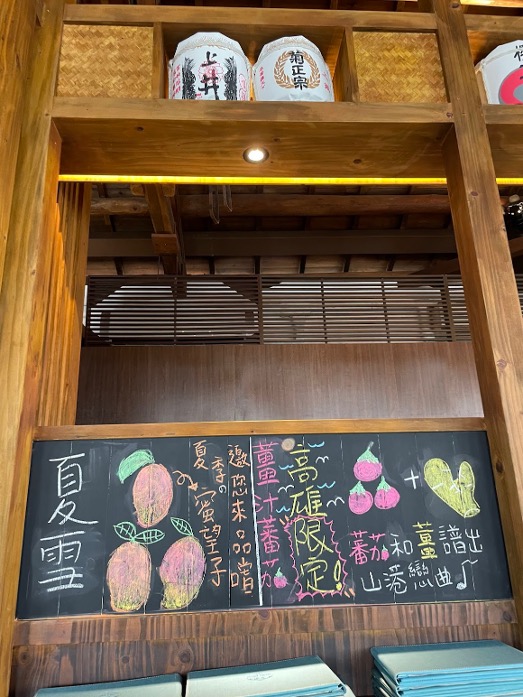 上井
菊正宗
夏雪
邀您來品嚐
夏季の
蜜望子
高雄限定!
薑汁蕃茄
+
蕃茄和薑譜出
山港戀曲♪